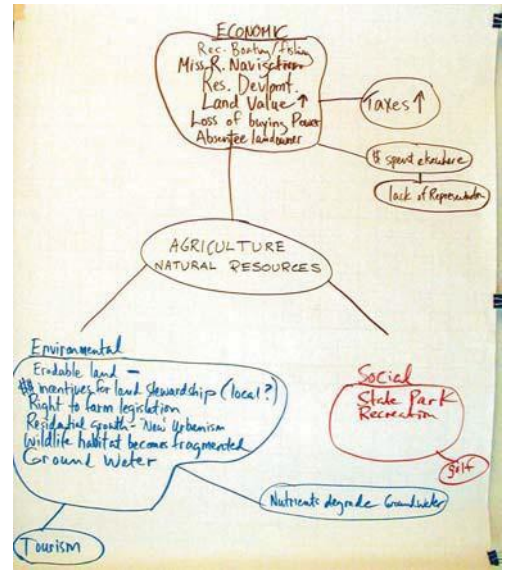 ECONOMIC
Rec. Boating/fishing
Miss R. Navigation
Res. Devlpmt.
Land Value ↑
Loss of buying Power
Absentee landowner
Taxes ↑
$$ spent elsewhere
lack of Representation
AGRICULTURE
NATURAL RESOURCES
Environmental
Erodable land —
$$ incentives for land stewardship (local?)
Right to farm legislation
Residential growth - 'New' Urbanism
Wildlife habitat becomes fragmented
Ground Water
Nutrients degrade Groundwater
Tourism
Social
State Park
Recreation
golf